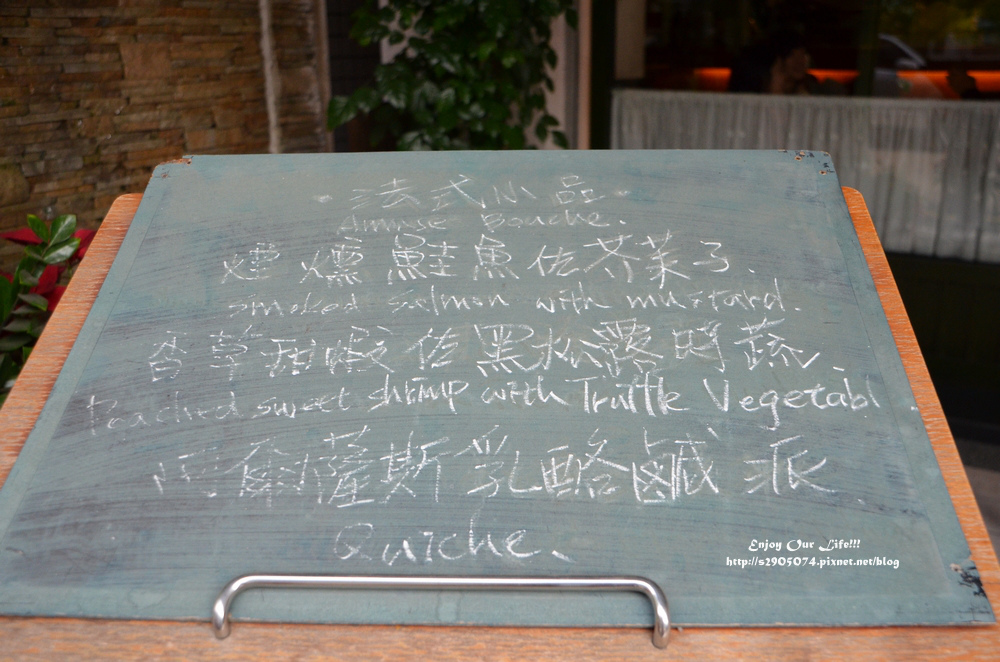 法式小品
Amuse Bouche.
煙燻鮭魚佐芥茉子.
smoked salmon with mustard.
香草甜蝦佐黑松露時蔬.
Poached sweet shrimp with Truffle Vegetabl
阿爾薩斯乳酪鹹派.
Quiche.
Enjoy Our Life!!!
http://s2905074.pixnet.net/blog